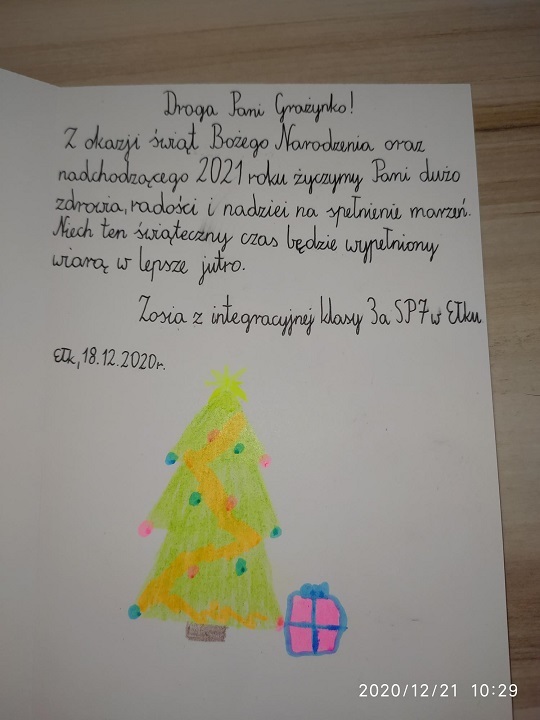 Droga Pani Grażynko!
Z okazji świąt Bożego Narodzenia oraz
nadchodzącego 2021 roku życzymy Pani dużo
zdrowia, radości i nadziei na spełnienie marzeń.
Niech ten świąteczny czas będzie wypełniony
wiarą w lepsze jutro.
Zosia z integracyjnej klasy 3a SP7 w Ełku
Ełk, 18.12.2020r.
2020/12/21 10:29